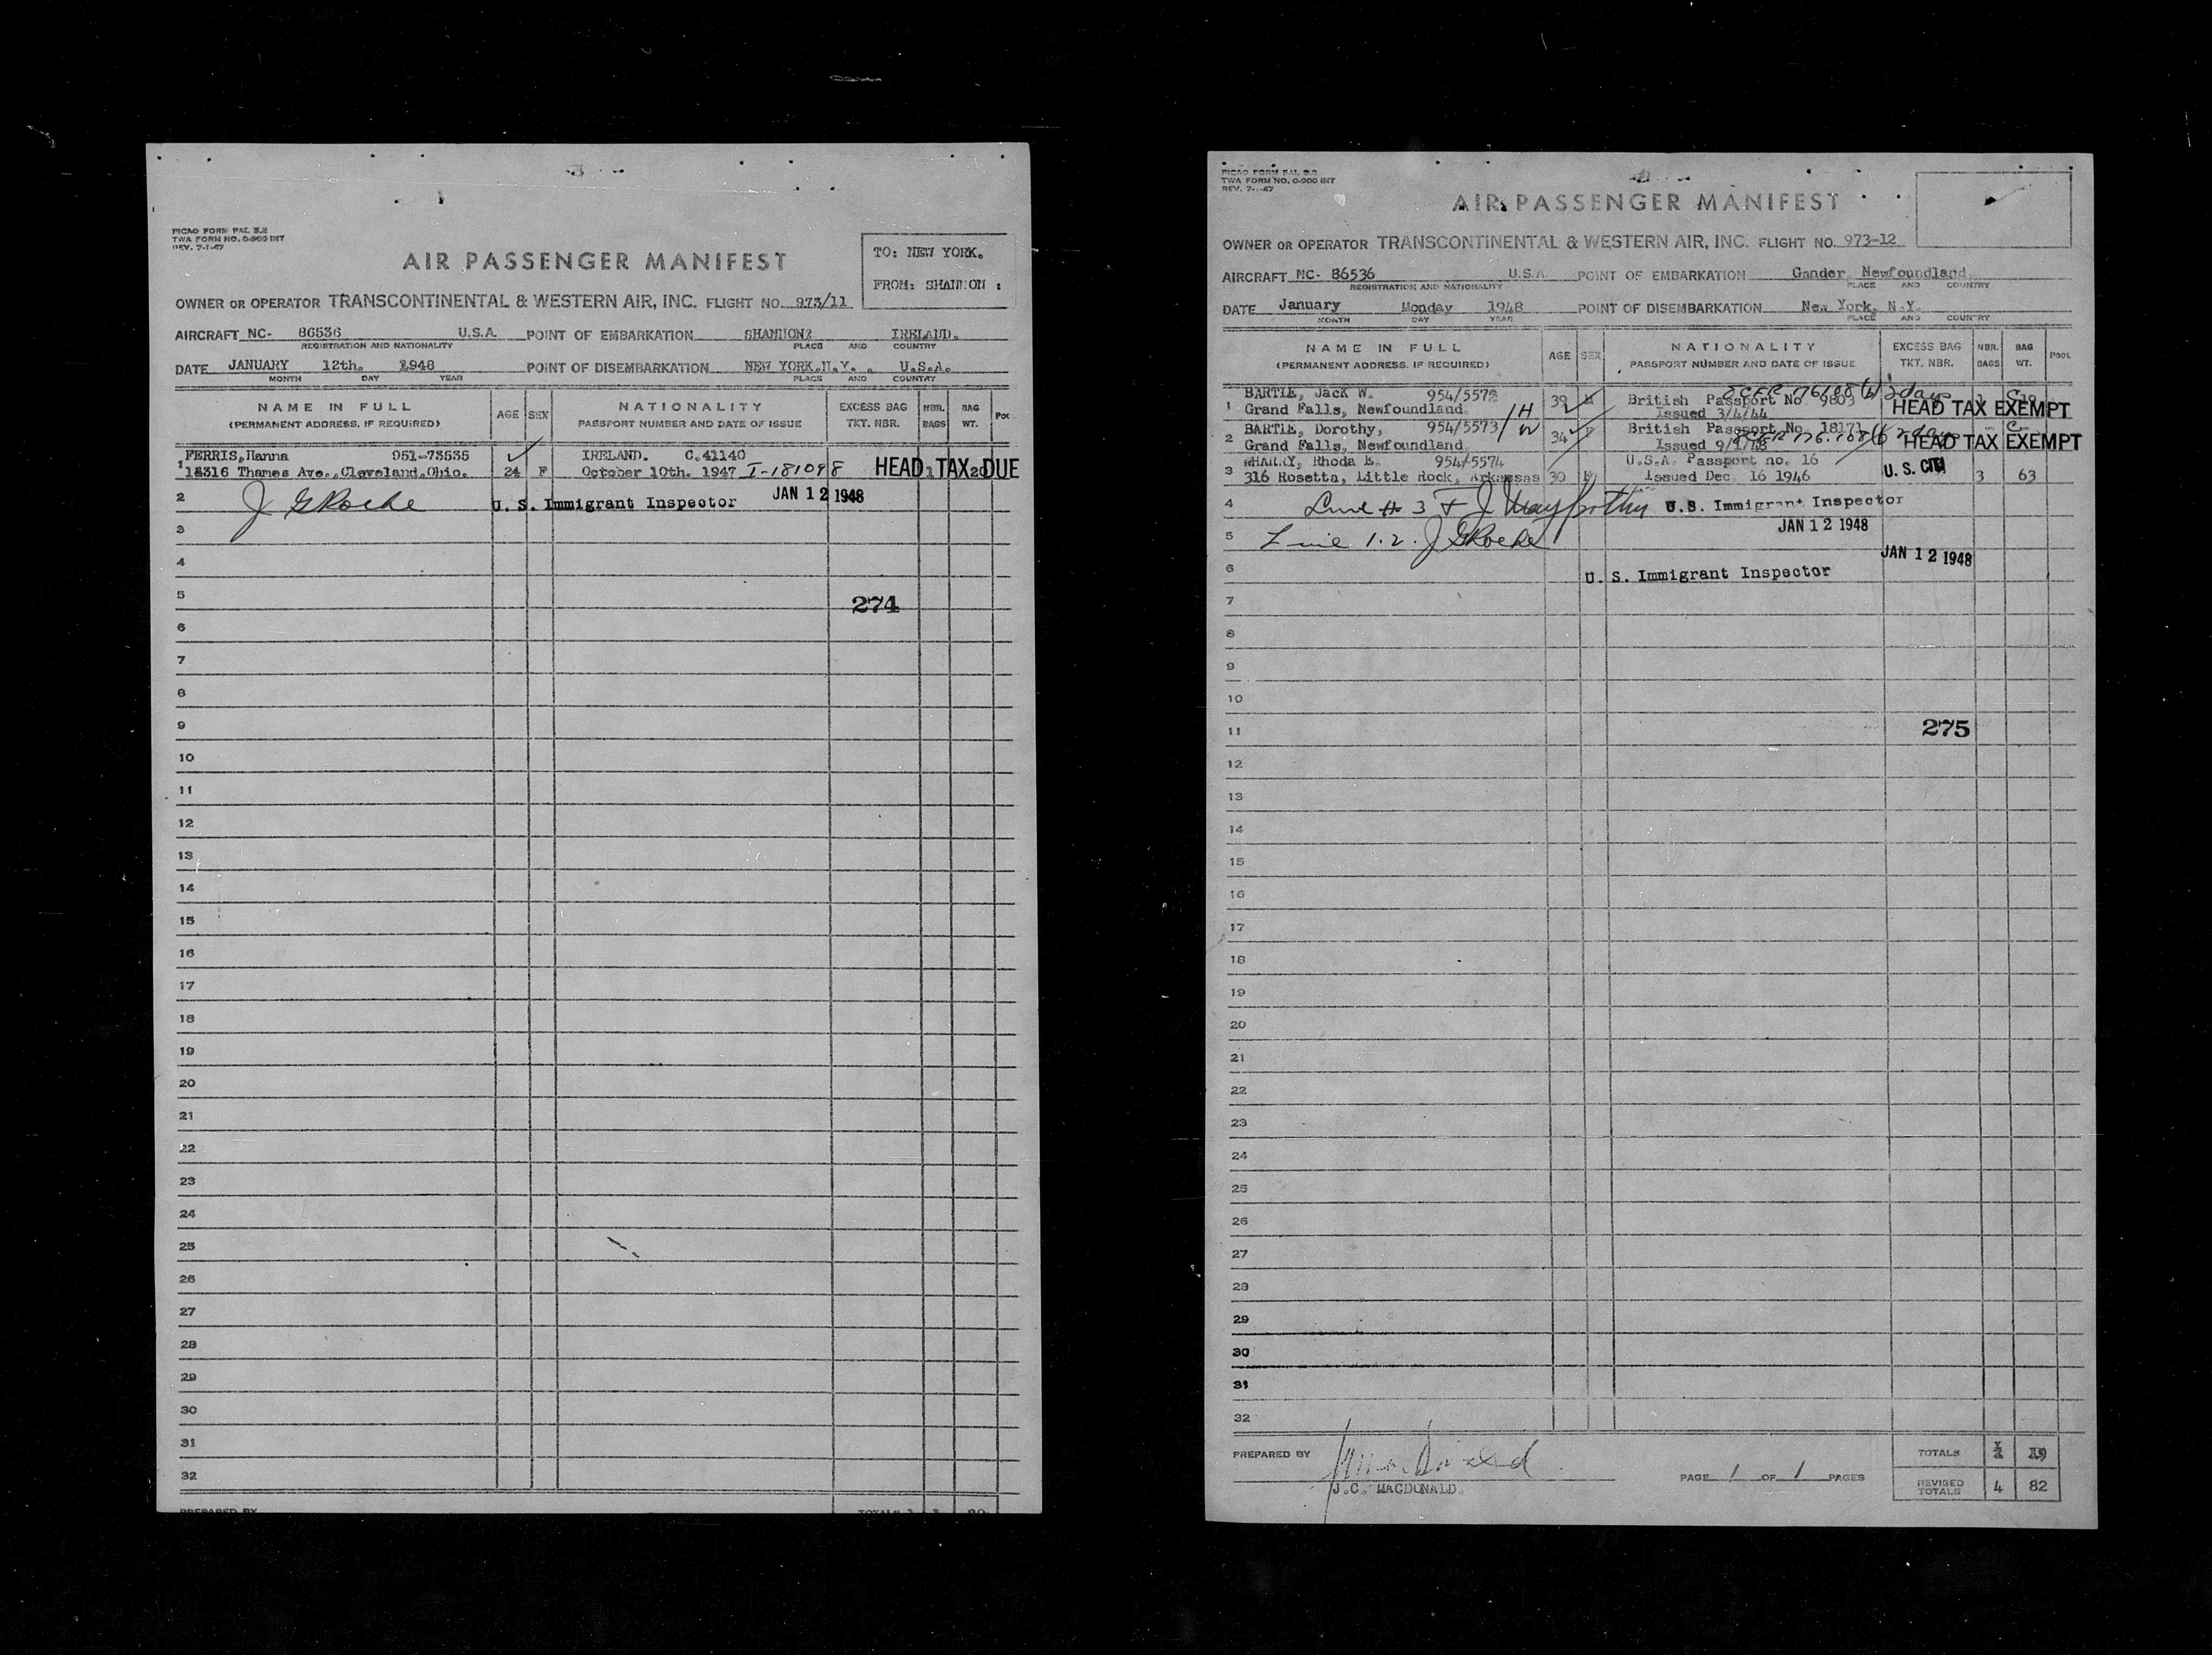 PICAO FORM PAL 3.2
TWA FORM NO. O-900 INT
REV. 7-1-47
AIR PASSENGER MANIFEST
TO: NEW YORK.
FROM: SHANNON :
OWNER OR OPERATOR TRANSCONTINENTAL & WESTERN AIR, INC. FLIGHT NO. 973/11
AIRCRAFT NC- 86536 U.S.A. POINT OF EMBARKATION SHANNON IRELAND.
REGISTRATION AND NATIONALITY PLACE AND COUNTRY
DATE JANUARY 12th. 1948 POINT OF DISEMBARKATION NEW YORK.N.Y. , U.S.A.
MONTH DAY YEAR PLACE AND COUNTRY
NAME IN FULL AGE SEX NATIONALITY EXCESS BAG NBR. BAG
(PERMANENT ADDRESS. IF REQUIRED) PASSPORT NUMBER AND DATE OF ISSUE TKT. NBR. BAGS WT.
FERRIS,Hanna 951-73535 IRELAND. C.41140
1 Thames Ave.,Cleveland,Ohio. 24 F October 10th. 1947 I-181098 HEAD TAX DUE
2 J G Roche U.S. Immigrant Inspector JAN 12 1948
3
4
5 274
6
7
8
9
10
11
12
13
14
15
16
17
18
19
20
21
22
23
24
25
26
27
28
29
30
31
32
PREPARED BY TOTALS
PICAO FORM PAL 3.2
TWA FORM NO. O-900 INT
AIR PASSENGER MANIFEST
OWNER OR OPERATOR TRANSCONTINENTAL & WESTERN AIR, INC. FLIGHT NO. 973-12
AIRCRAFT NC- 86536 U.S.A. POINT OF EMBARKATION Gander, Newfoundland.
REGISTRATION AND NATIONALITY PLACE AND COUNTRY
DATE January Monday 1948 POINT OF DISEMBARKATION New York, N.Y.
MONTH DAY YEAR PLACE AND COUNTRY
NAME IN FULL AGE SEX NATIONALITY EXCESS BAG NBR. BAG POOL
(PERMANENT ADDRESS. IF REQUIRED) PASSPORT NUMBER AND DATE OF ISSUE TKT. NBR. BAGS WT.
BARTLE, Jack W. 954/5572 39 M British Passport No. 9803 2 days
1 Grand Falls, Newfoundland. H Issued 3/4/44 HEAD TAX EXEMPT
BARTLE, Dorothy, 954/5573 W 34 F British Passport No. 18171 2 days
2 Grand Falls, Newfoundland. Issued HEAD TAX EXEMPT
Rhoda E. 954/5574 U.S.A. Passport no. 16 U.S. CIT
3 316 Rosetta, Little Rock, Arkansas 30 Issued Dec. 16 1946 3 63
4 Line # 3 U.S. Immigrant Inspector
JAN 12 1948
5 Line 1.2. J G Roche
JAN 12 1948
6 U.S. Immigrant Inspector
7
8
9
10
11 275
12
13
14
15
16
17
18
19
20
21
22
23
24
25
26
27
28
29
30
31
32
PREPARED BY TOTALS 19
J.C. MACDONALD. PAGE 1 OF 1 PAGES
REVISED TOTALS 4 82